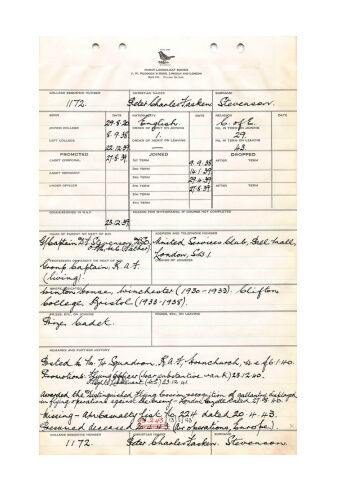 COLLEGE REGISTER NUMBER CHRISTIAN NAMES SURNAME
1172. Peter Charles Fasken Stevenson.
BORN DATE NATIONALITY RELIGION
29.8.20 English. C. of E.
JOINED COLLEGE ORDER OF MERIT ON JOINING NO. IN TERM ON JOINING
8.9.38 1. 29.
LEFT COLLEGE ORDER OF MERIT ON LEAVING NO. IN TERM ON LEAVING
22.12.39 43.
PROMOTED DATE JOINED DATE DROPPED DATE
CADET CORPORAL 27.8.39 AFTER TERM
9.9.38
CADET SERGEANT 2ND TERM 14.1.39 AFTER TERM
3RD TERM 29.4.39
UNDER OFFICER 4TH TERM 27.8.39 AFTER TERM
5TH TERM
COMMISSIONED IN R.A.F. REASON FOR WITHDRAWAL IF COURSE NOT COMPLETED
23.12.39
NAME OF PARENT OR NEXT OF KIN ADDRESS AND TELEPHONE NUMBER
G/Captain Stevenson, D.S.O., United Services Club, Pall Mall,
M.C. (Father) London, S.W.1.
Group Captain, R.A.F.
(living)
WHERE EDUCATED
House, Winchester (1930-1933). Clifton
College, Bristol (1933-1938).
PRIZES, ETC., ON JOINING PRIZES, ETC., ON LEAVING
Prize Cadet.
REMARKS AND FURTHER HISTORY
Posted to No. 74 Squadron, R.A.F., Hornchurch, w.e.f 6.1.40.
Promotions: Flying Officer (War substantive rank) 23.12.40.
Flight Lieutenant (W.S) 23.12.41
Awarded the Distinguished Flying Cross, in recognition of gallantry displayed
in flying operations against the enemy - London Gazette dated
Missing - Air Casualty List No. 224 dated 20.4.43.
Presumed deceased (Air operations, Europe).
COLLEGE REGISTER NUMBER CHRISTIAN NAMES SURNAME
1172. Peter Charles Fasken Stevenson.